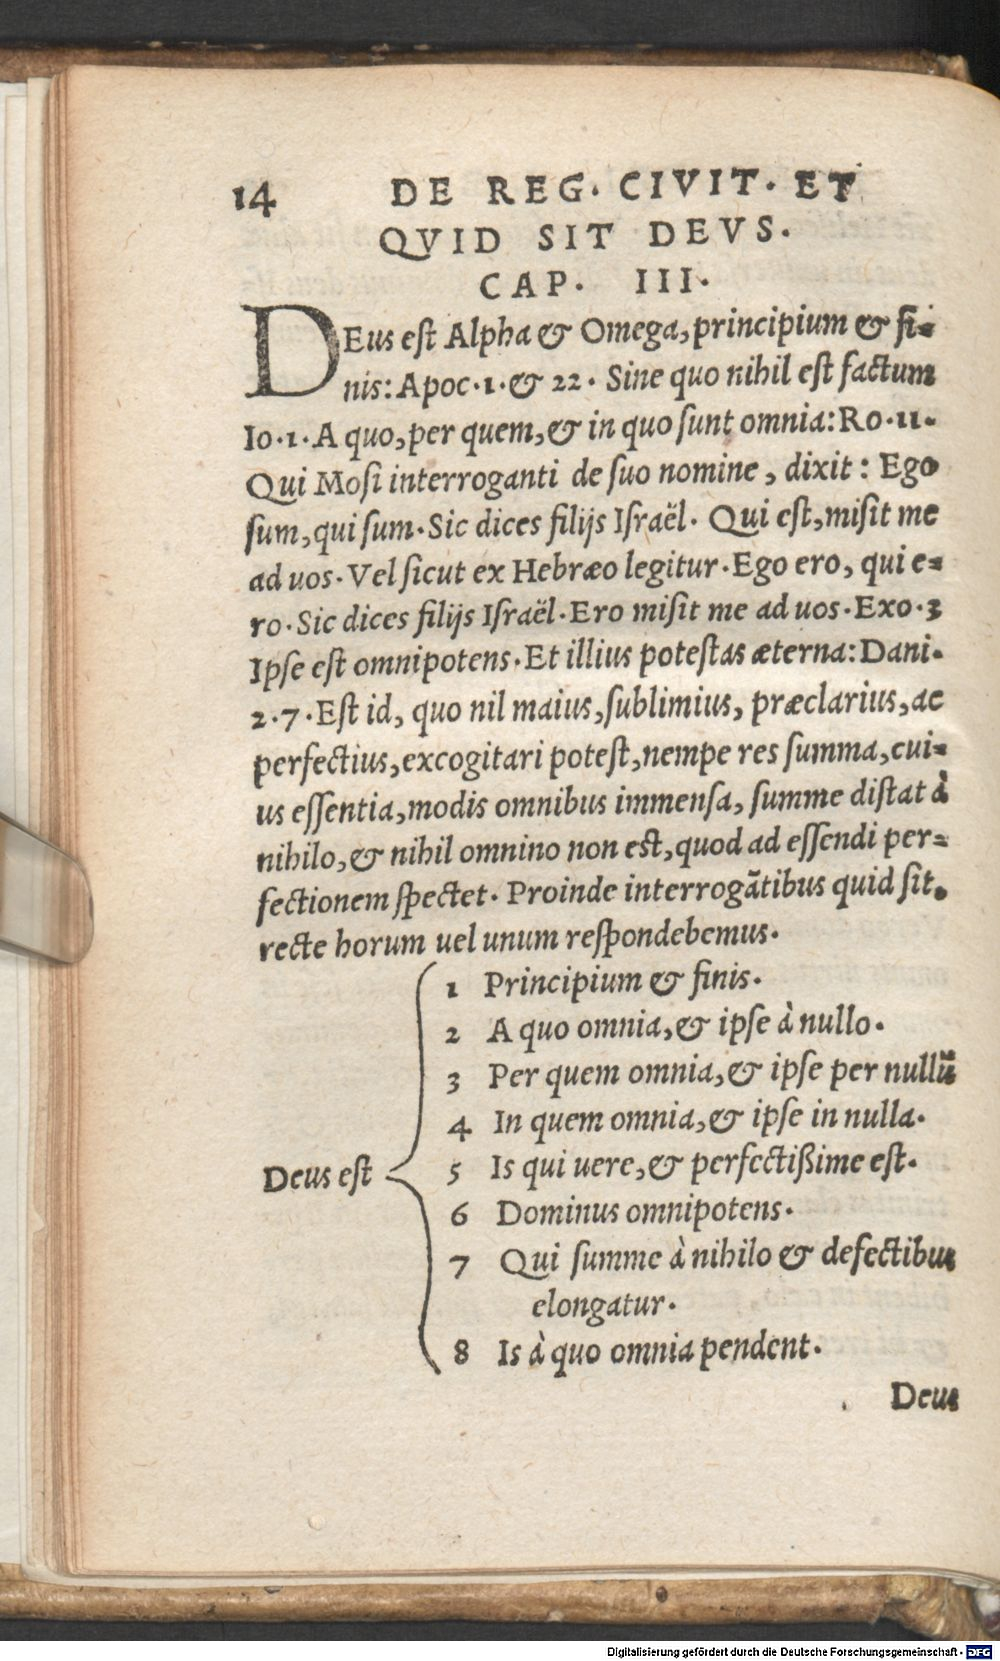 14 DE REG. CIVIT. ET
QVID SIT DEVS.
CAP. III.
DEus eſt Alpha & Omega, principium & fi-
nis: Apoc. 1. & 22. Sine quo nihil eſt factum
Io. 1. A quo, per quem, & in quo ſunt omnia: Ro. 11.
Qui Moſi interroganti de ſuo nomine, dixit: Ego
ſum, qui ſum. Sic dices filijs Iſraël. Qui eſt, miſit me
ad uos. Vel ſicut ex Hebræo legitur. Ego ero, qui e-
ro. Sic dices filijs Iſraël. Ero miſit me ad uos. Exo. 3
Ipſe eſt omnipotens. Et illius poteſtas æterna: Dani.
2. 7. Eſt id, quo nil maius, ſublimius, præclarius, ac
perfectius, excogitari poteſt, nempe res ſumma, cui-
us eſſentia, modis omnibus immenſa, ſumme diſtat à
nihilo, & nihil omnino non est, quod ad eſſendi per-
fectionem ſpectet. Proinde interrogãtibus quid ſit,
recte horum uel unum reſpondebemus.
Deus eſt
1 Principium & finis.
2 A quo omnia, & ipſe à nullo.
3 Per quem omnia, & ipſe per nullũ
4 In quem omnia, & ipſe in nulla.
5 Is qui uere, & perfectißime eſt.
6 Dominus omnipotens.
7 Qui ſumme à nihilo & defectibus
elongatur.
8 Is à quo omnia pendent.
Deus
Digitalisierung gefördert durch die Deutsche Forschungsgemeinschaft - DFG